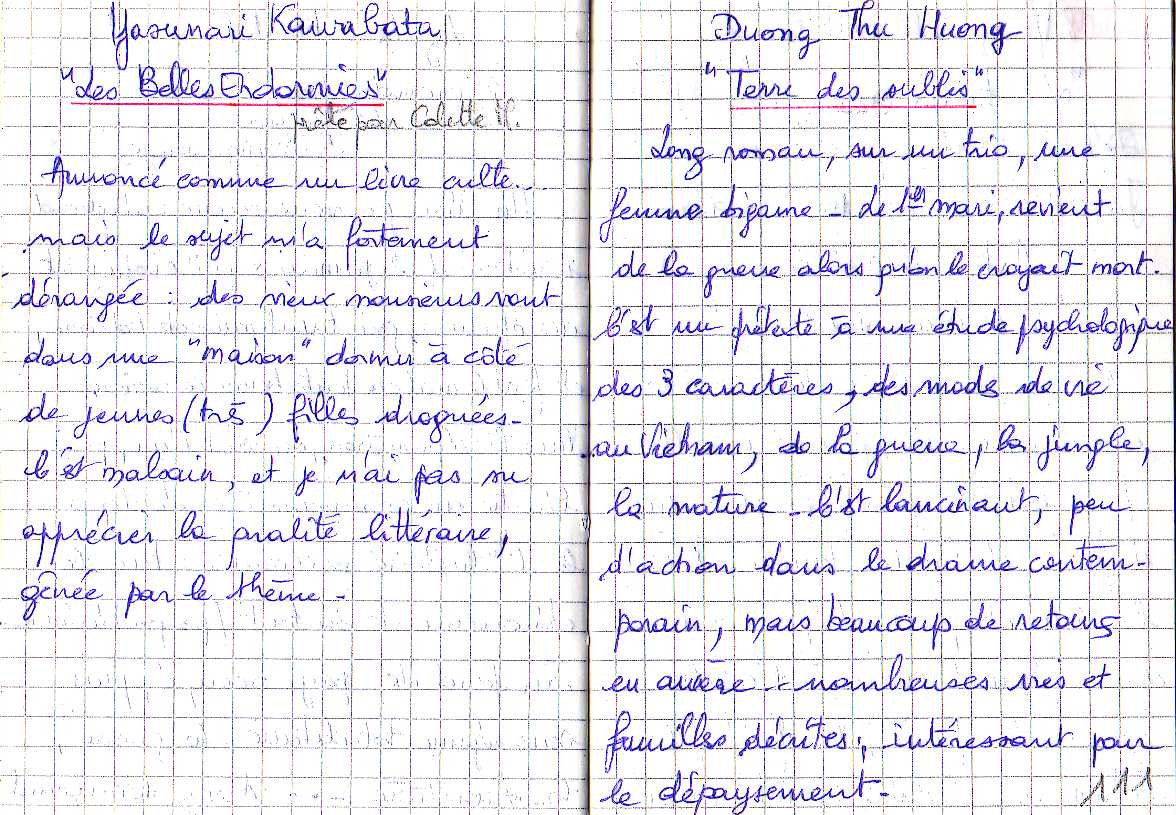 Yasunari Kawabata
"Les Belles Endormies"
prêté par Colette H.
Annoncé comme un livre culte...
mais le sujet m'a fortement
dérangée : des vieux messieurs vont
dans une "maison" dormir à côté
de jeunes (très) filles droguées -
C'est malsain, et je n'ai pas su
apprécier la qualité littéraire,
gênée par le thème -
Duong Thu Huong
"Terre des oublis"
Long roman, sur un trio, une
femme bigame - le 1er mari, revient
de la guerre alors qu'on le croyait mort.
C'est un prétexte à une étude psychologique
des 3 caractères, des modes de vie
au Vietnam, de la guerre, la jungle,
la nature - C'est lancinant, peu
d'action dans le drame contem-
porain, mais beaucoup de retours
en arrière - nombreuses vies et
familles décrites, intéressant pour
le dépaysement -
111